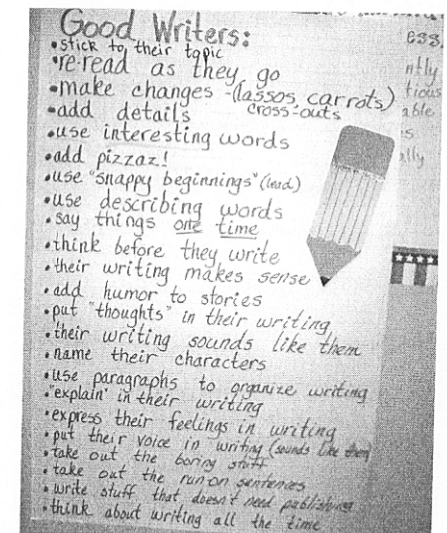 Good Writers:
•stick to their topic
•re-read as they go
•make changes -(lassos, carrots)
cross-outs
•add details
•use interesting words
•add pizzaz!
•use "snappy beginnings" (lead)
•use describing words
•say things one time
•think before they write
•their writing makes sense
•add humor to stories
•put "thoughts" in their writing
•their writing sounds like them
•name their characters
•use paragraphs to organize writing
•"explain" in their writing
•express their feelings in writing
•put their voice in writing (sounds like them)
•take out the boring stuff
•take out the run-on sentences
•write stuff that doesn't need publishing
•think about writing all the time
ess
ntly
tious
able
es
ally